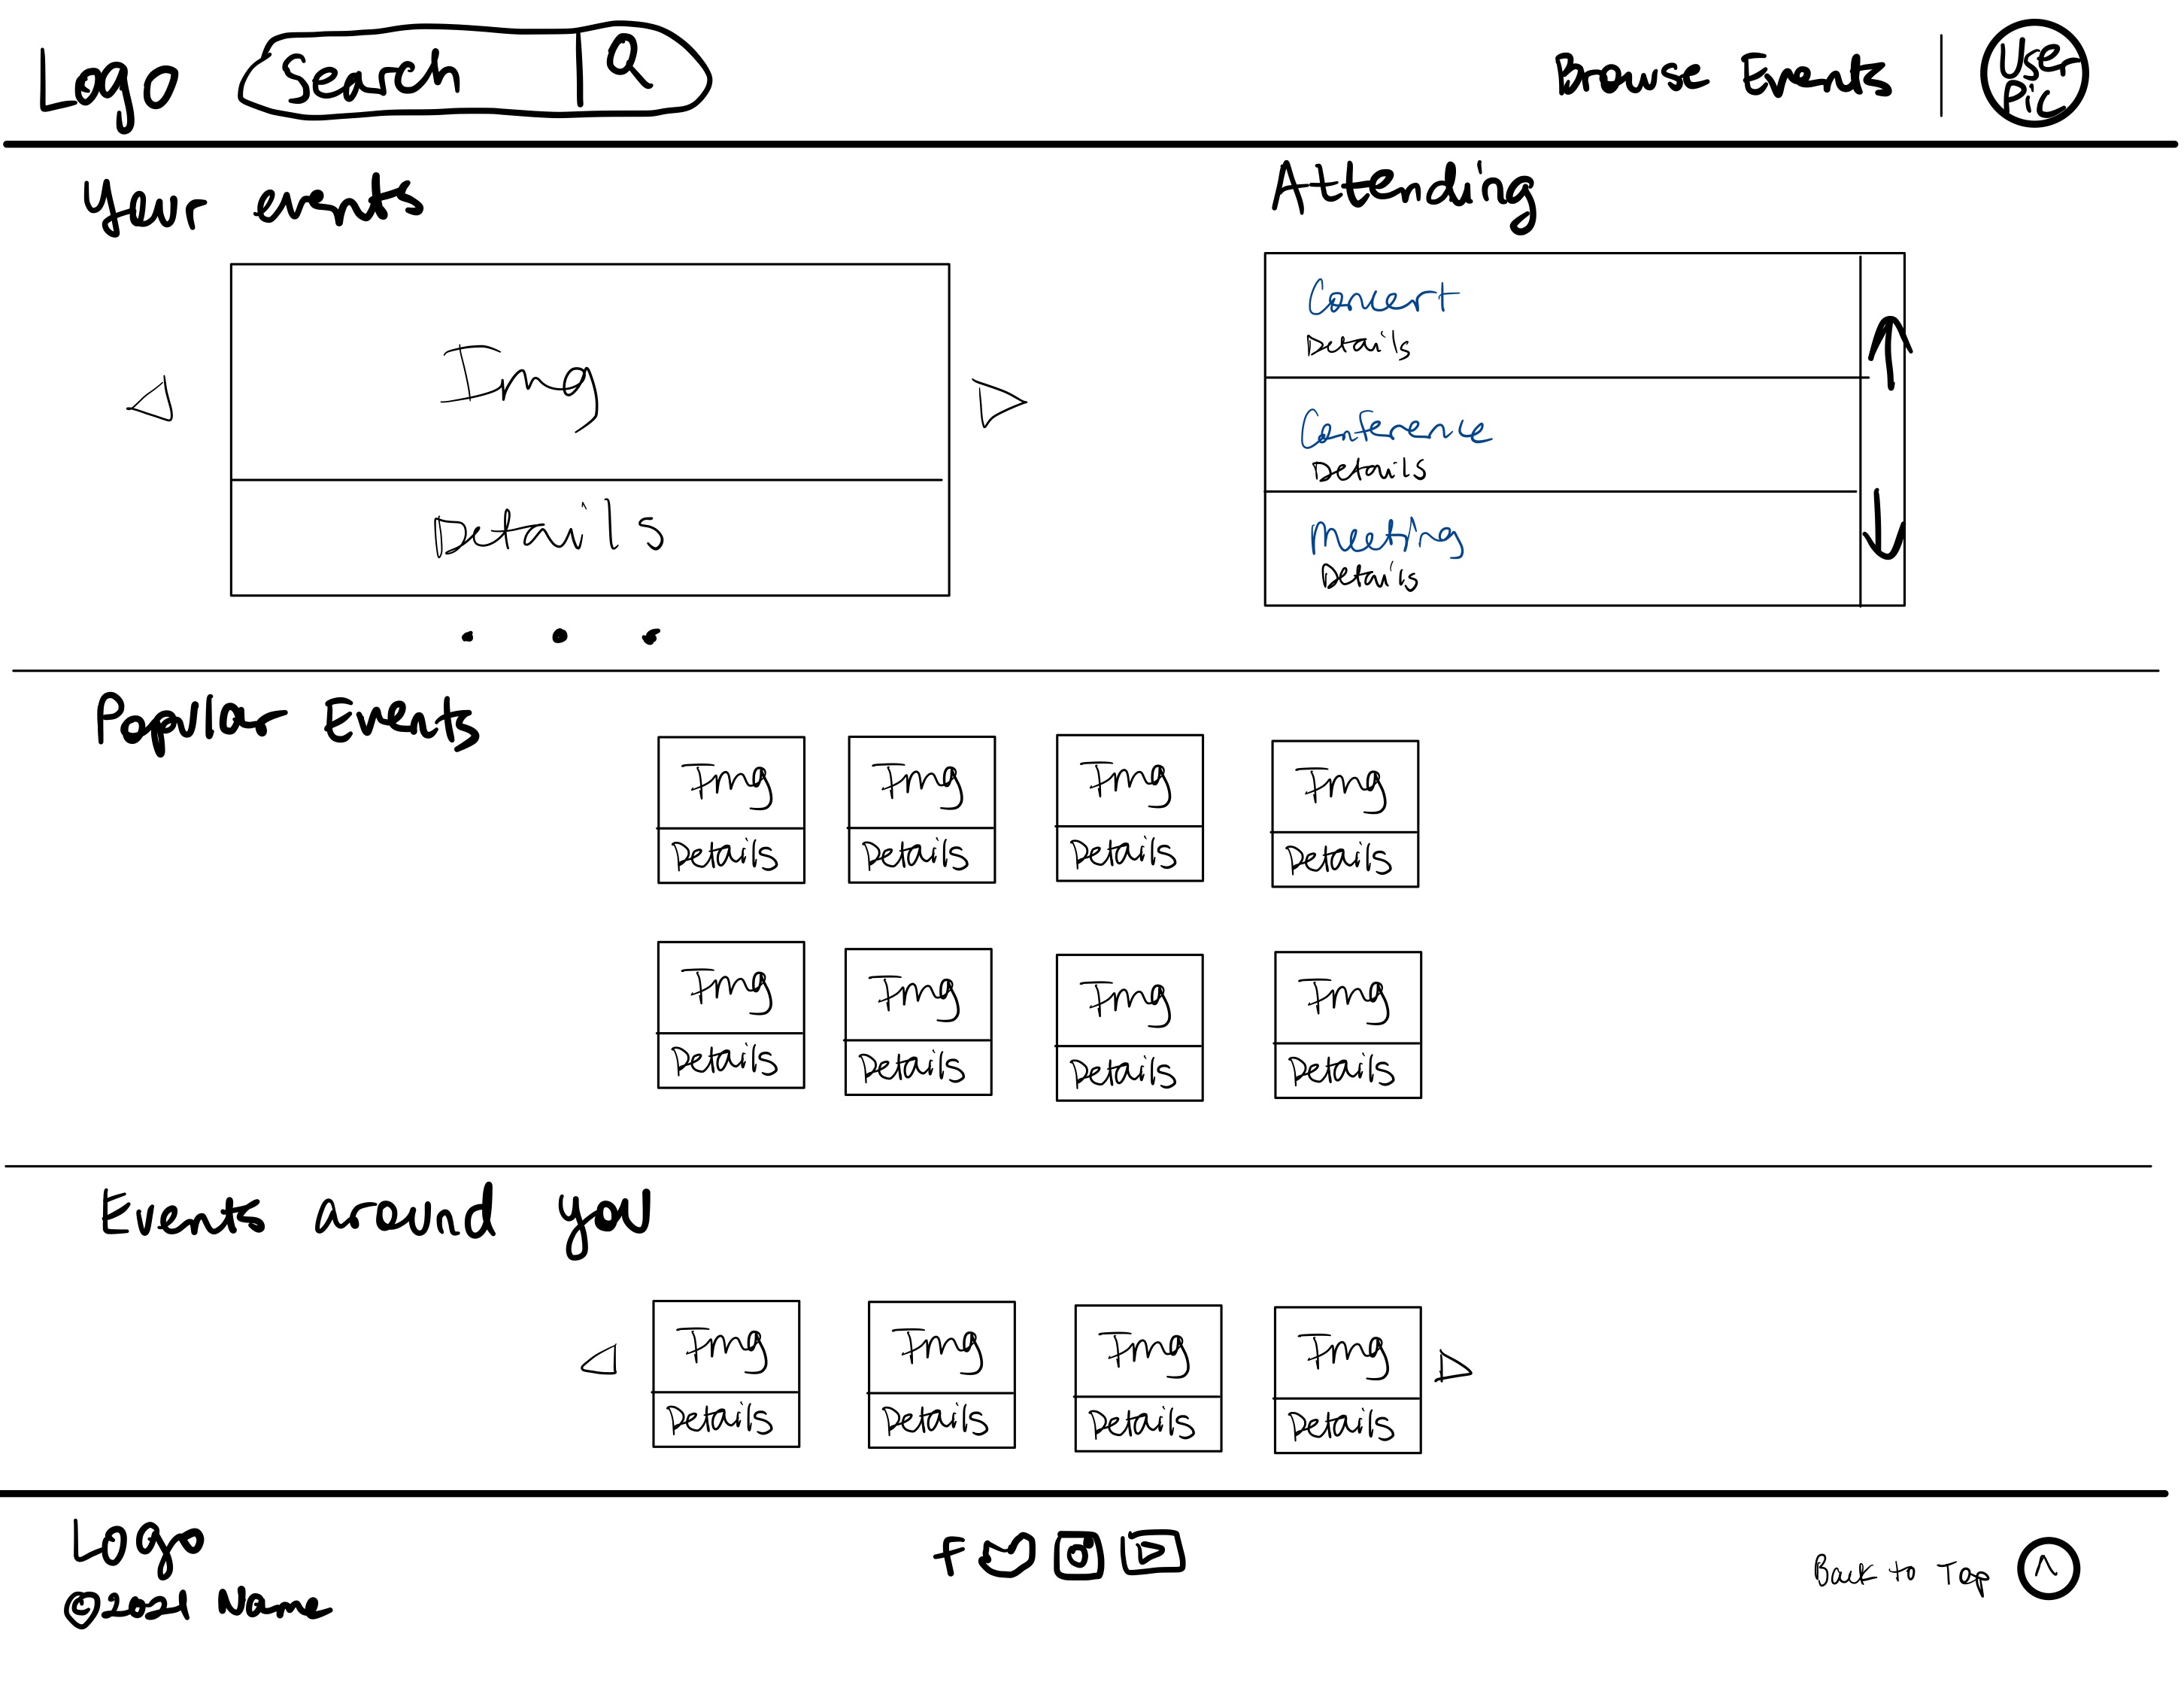 Logo Search Browse Events User Pic
Your events
Attending
Img
Details
Concert
Details
Conference
Details
Meeting
Details
Popular Events
Img Img Img Img
Details Details Details Details
Img Img Img Img
Details Details Details Details
Events around you
Img Img Img Img
Details Details Details Details
Logo
©2021 Name
Back to Top